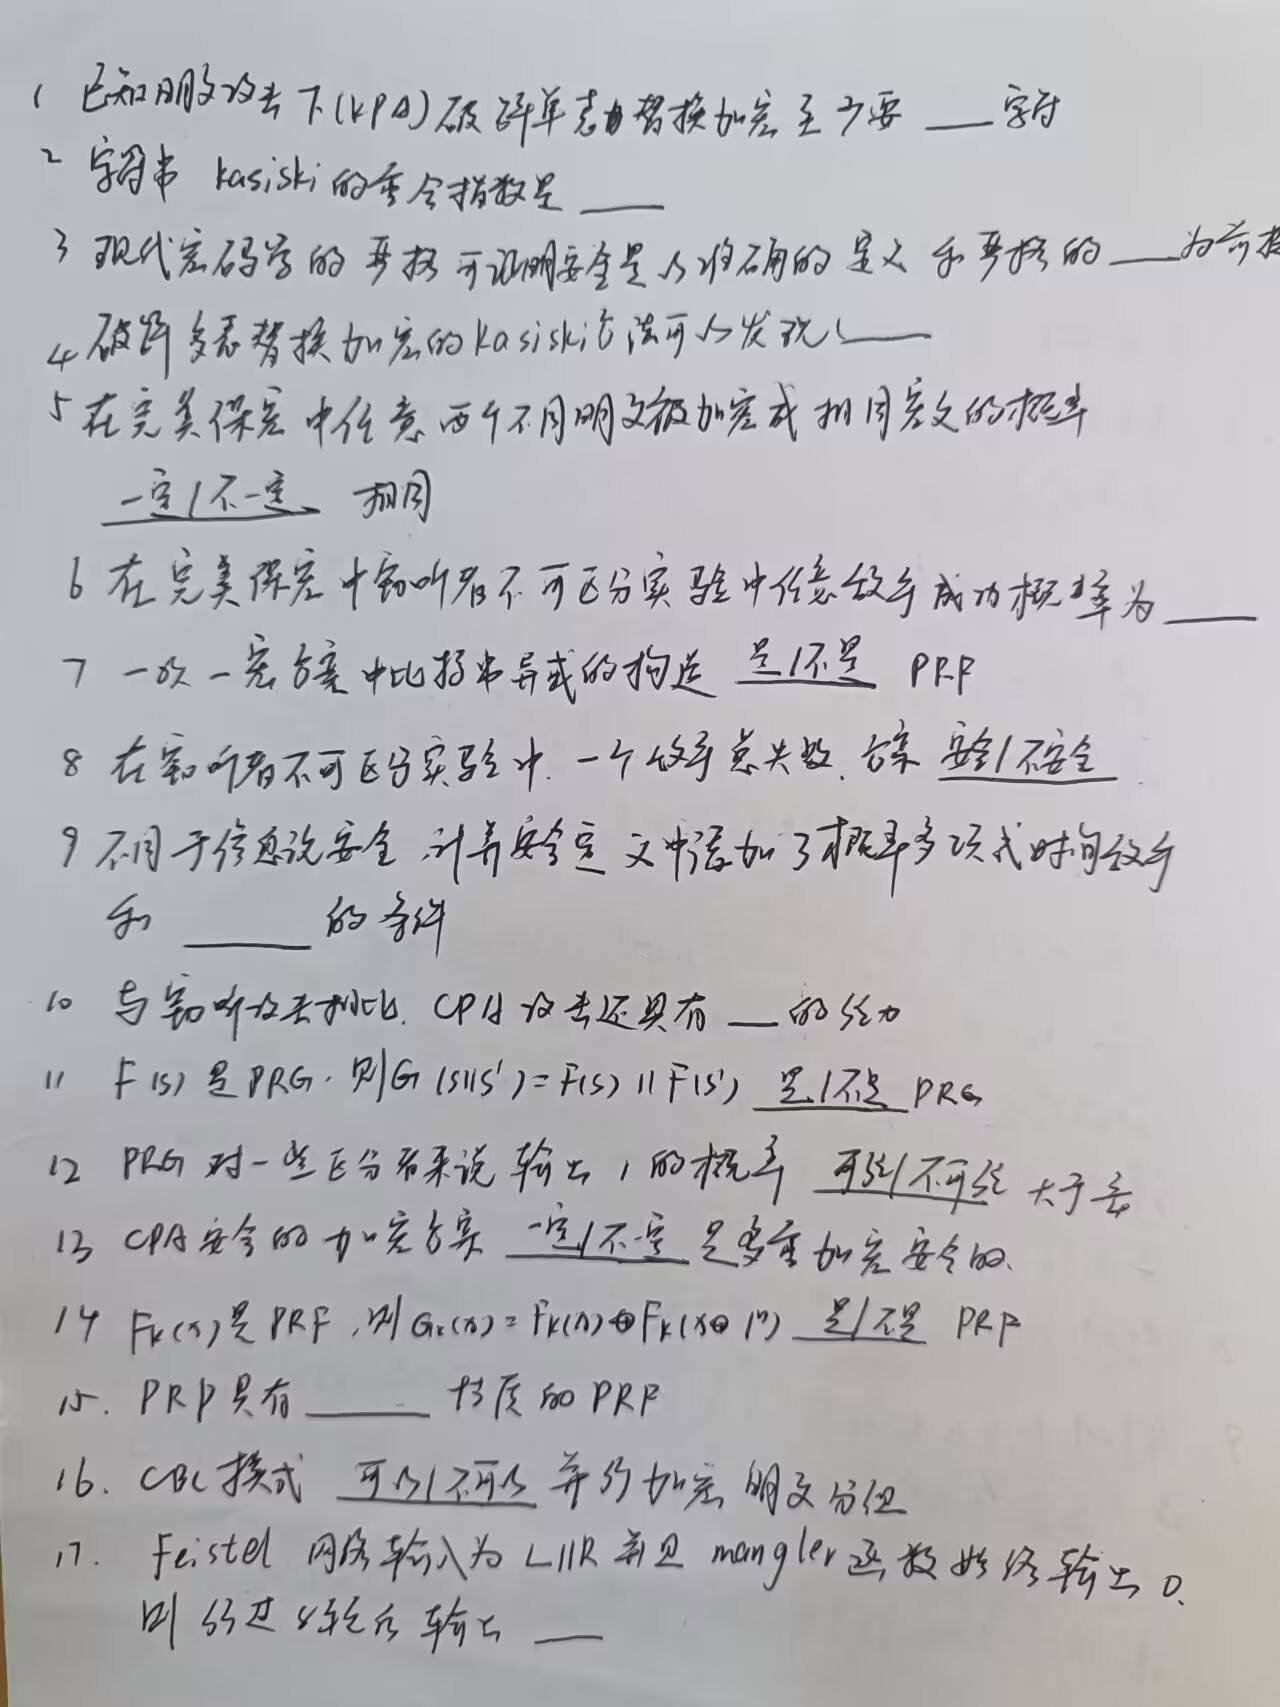 1 已知明文攻击下(KPA)破解单表替换加密至少要 ___ 字符
2 字符串 kasiski的重合指数是 ___
3 现代密码学的严格可证明安全是以准确的定义和严格的 ___ 为前提
4 破解多表替换加密的kasiski方法可以发现 ___
5 在完美保密中任意两个不同明文被加密成相同密文的概率
一定/不一定 相同
6 在完美保密中窃听者不可区分实验中任意敌手成功概率为 ___
7 一次一密方案中比特串异或的构造 是/不是 PRF
8 在窃听者不可区分实验中.一个敌手总失败.方案 安全/不安全
9 不同于信息论安全,计算安全定义中添加了概率多项式时间敌手
和 ___ 的条件
10 与窃听攻击相比.CPA攻击还具有 ___ 的能力
11 F(s)是PRG.则G(s||s')=F(s)||F(s') 是/不是 PRG
12 PRG对一些区分器来说输出1的概率 可能/不可能 大于
13 CPA安全的加密方案 一定/不一定 是多重加密安全的.
14 Fk(x)是PRF,则Gk(x)=Fk(x)⊕Fk(x⊕1ⁿ) 是/不是 PRF
15. PRP具有 ___ 特质的PRF
16. CBC模式 可以/不可以 并行加密明文分组
17. Feistel 网络输入为L||R并且mangler函数始终输出0.
则经过8轮后输出 ___